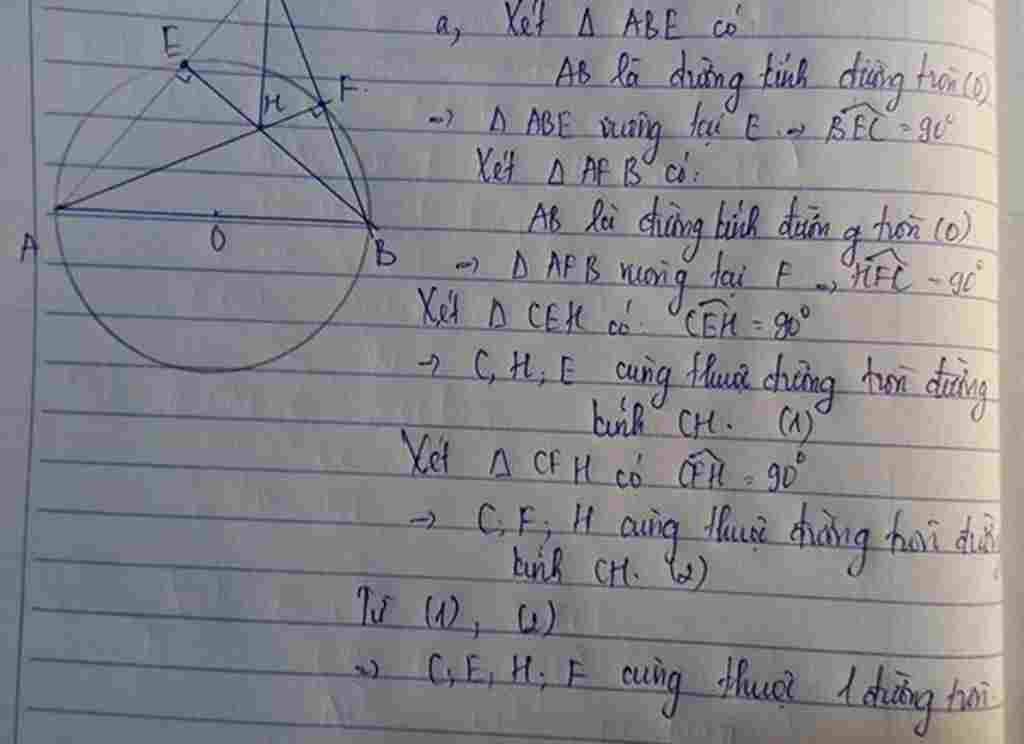 a, Xét Δ ABE có
AB là đường kính đường tròn (O)
→ Δ ABE vuông tại E → BEC = 90°
Xét Δ AFB có:
AB là đường kính đường tròn (O)
→ Δ AFB vuông tại F → HFC = 90°
Xét Δ CEH có: CEH = 90°
→ C, H, E cùng thuộc đường tròn đường
kính CH. (1)
Xét Δ CFH có CFH = 90°
→ C, F, H cùng thuộc đường tròn
kính CH. (2)
Từ (1), (2)
→ C, E, H, F cùng thuộc 1 đường tròn
E
H
F
A
O
B